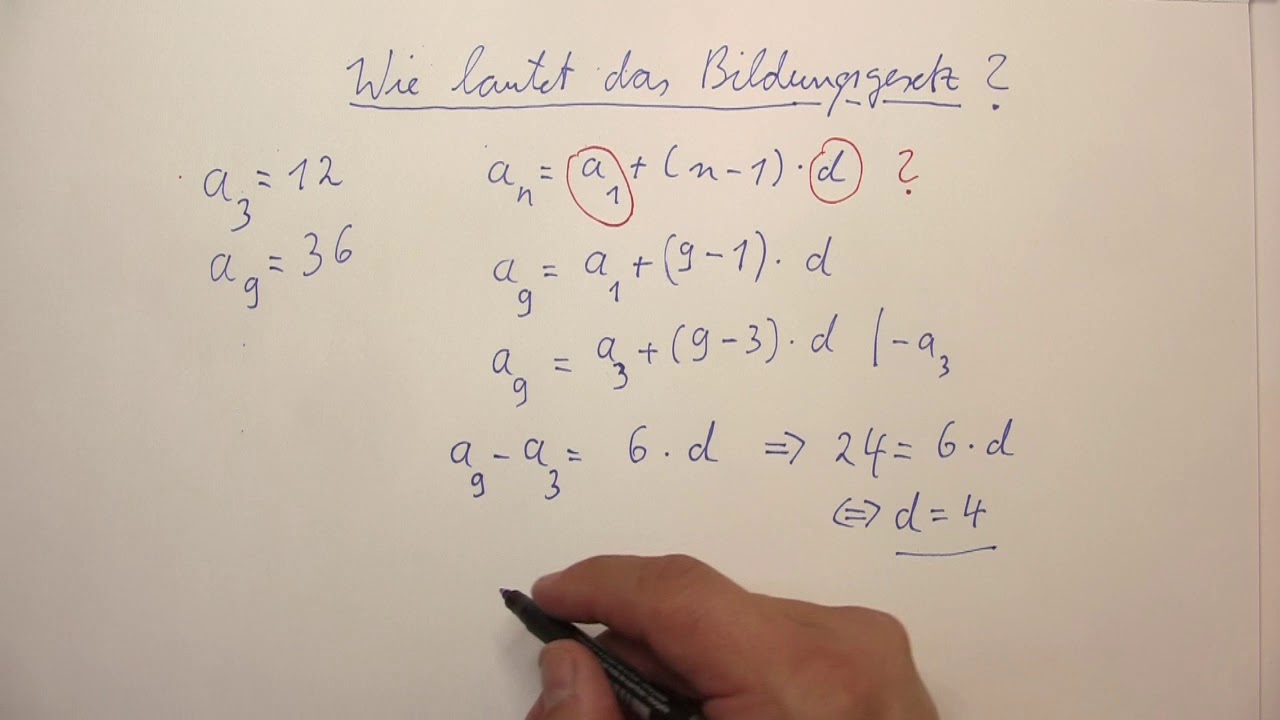 Wie lautet das Bildungsgesetz ?
a₃ = 12
aₙ = a₁ + (n - 1) · d ?
a₉ = 36
a₉ = a₁ + (9 - 1) · d
a₉ = a₃ + (9 - 3) · d | - a₃
a₉ - a₃ = 6 · d ⇒ 24 = 6 · d
⇔ d = 4